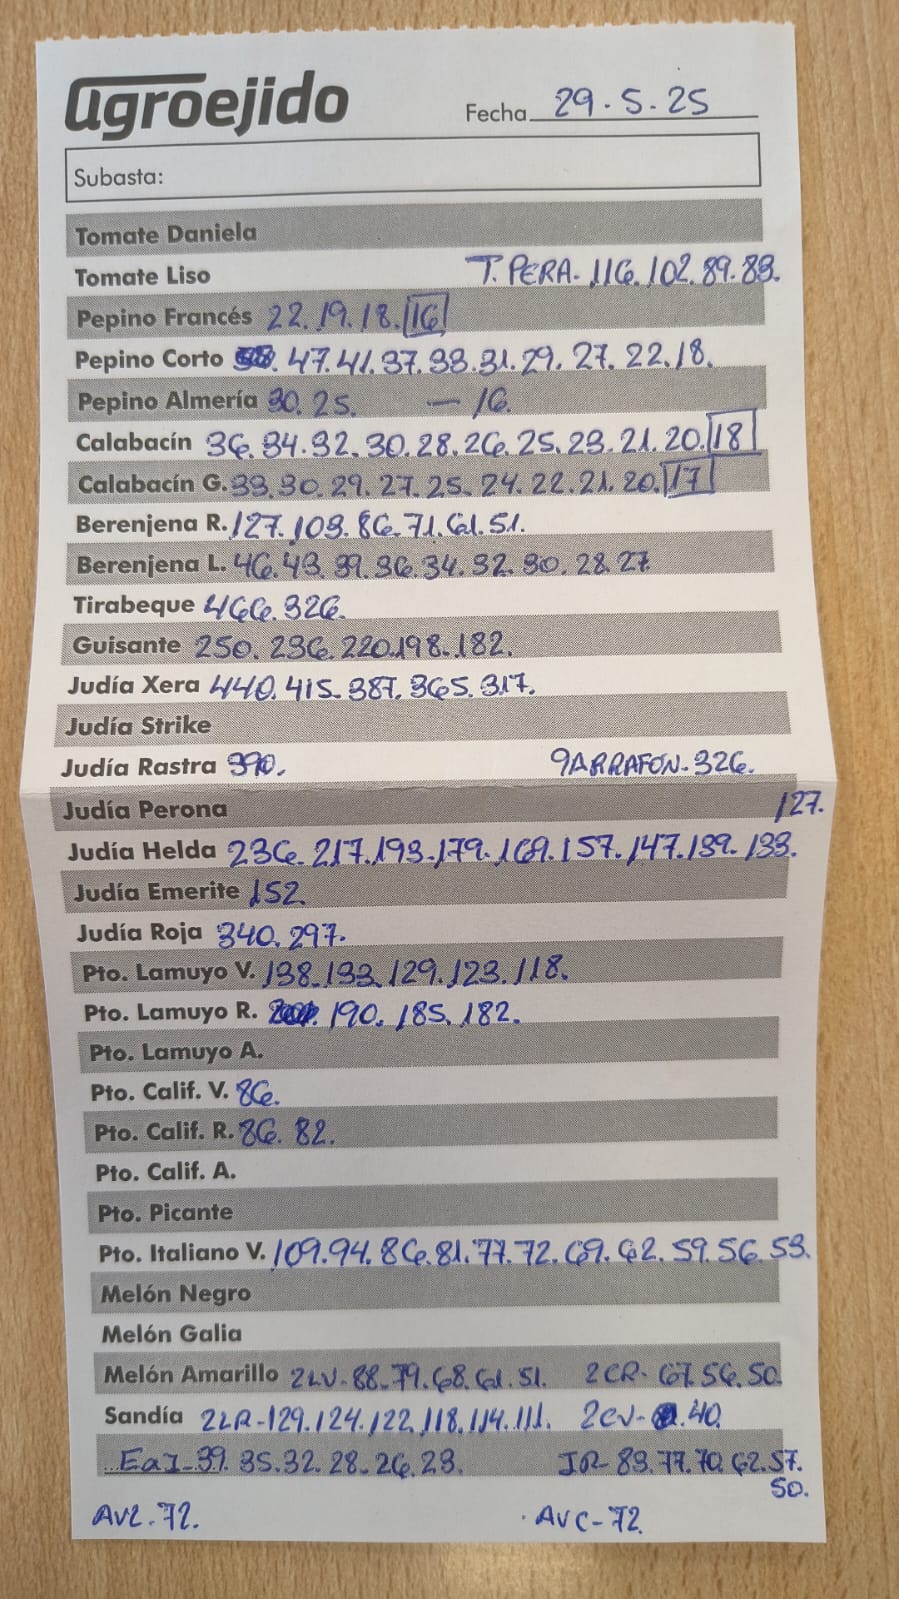 agroejido Fecha 29.5.25
Subasta:
Tomate Daniela
Tomate Liso T. PERA. 116. 102. 89. 83.
Pepino Francés 22. 19. 18. 16
Pepino Corto 47. 41. 37. 33. 31. 29. 27. 22. 18.
Pepino Almería 30. 25. — 16.
Calabacín 36. 34. 32. 30. 28. 26. 25. 23. 21. 20. 18
Calabacín G. 33. 30. 29. 27. 25. 24. 22. 21. 20. 17
Berenjena R. 127. 103. 86. 71. 61. 51.
Berenjena L. 46. 43. 39. 36. 34. 32. 30. 28. 27
Tirabeque 466. 326.
Guisante 250. 236. 220. 198. 182.
Judía Xera 440. 415. 387. 365. 317.
Judía Strike
Judía Rastra 390. GARRAFON. 326.
Judía Perona 127.
Judía Helda 236. 217. 193. 179. 169. 157. 147. 139. 133.
Judía Emerite 152
Judía Roja 340. 297.
Pto. Lamuyo V. 138. 133. 129. 123. 118.
Pto. Lamuyo R. 190. 185. 182.
Pto. Lamuyo A.
Pto. Calif. V. 86.
Pto. Calif. R. 86. 82.
Pto. Calif. A.
Pto. Picante
Pto. Italiano V. 109. 94. 86. 81. 77. 72. 69. 62. 59. 56. 53.
Melón Negro
Melón Galia
Melón Amarillo 2LV-88. 79. 68. 61. 51. 2CR- 67. 56. 50.
Sandía 2LR-129. 124. 122. 118. 114. 111. 2CV- 40.
EaJ-39. 35. 32. 28. 26. 23. JR- 83. 77. 70. 62. 57.
50.
AVL-72. AVC-72